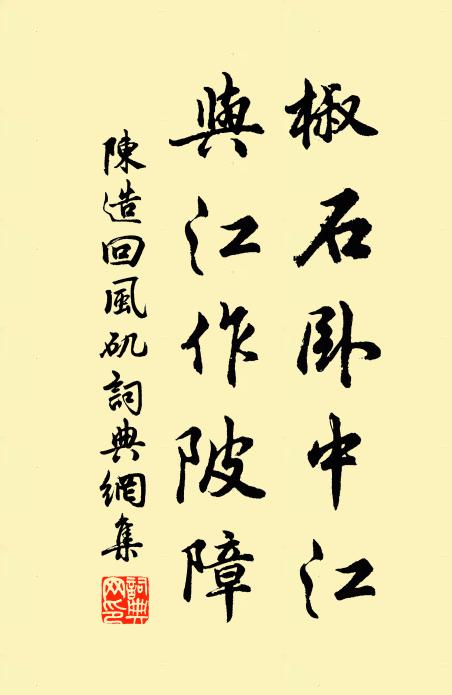 椒石卧中江
與江作陂障
陳造回風矶詞典網集
詞典网印